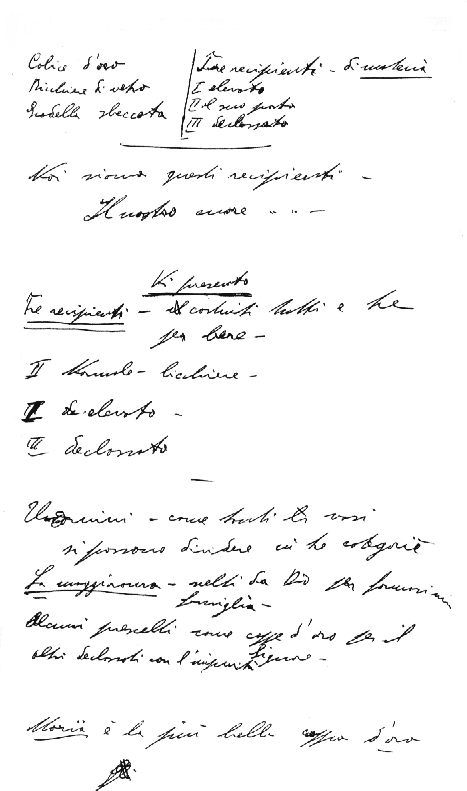 Calice d'oro
Bicchiere di vetro
Scodella sbeccata
Tre recipienti - di materia
I elevato
II il suo posto
III declassato
Noi siamo questi recipienti -
Il nostro cuore . . . -
Vi presento
Tre recipienti - costruiti tutti e tre
per bene -
II Normale - bicchiere -
I elevato -
III declassato
Uomini - come tanti vasi
si possono dividere in tre categorie
La maggioranza - scelti da Dio per formarsi una
famiglia -
Alcuni prescelti come coppe d'oro per il
Signore -
altri declassati con l'impurità
Maria è la più bella coppa d'oro